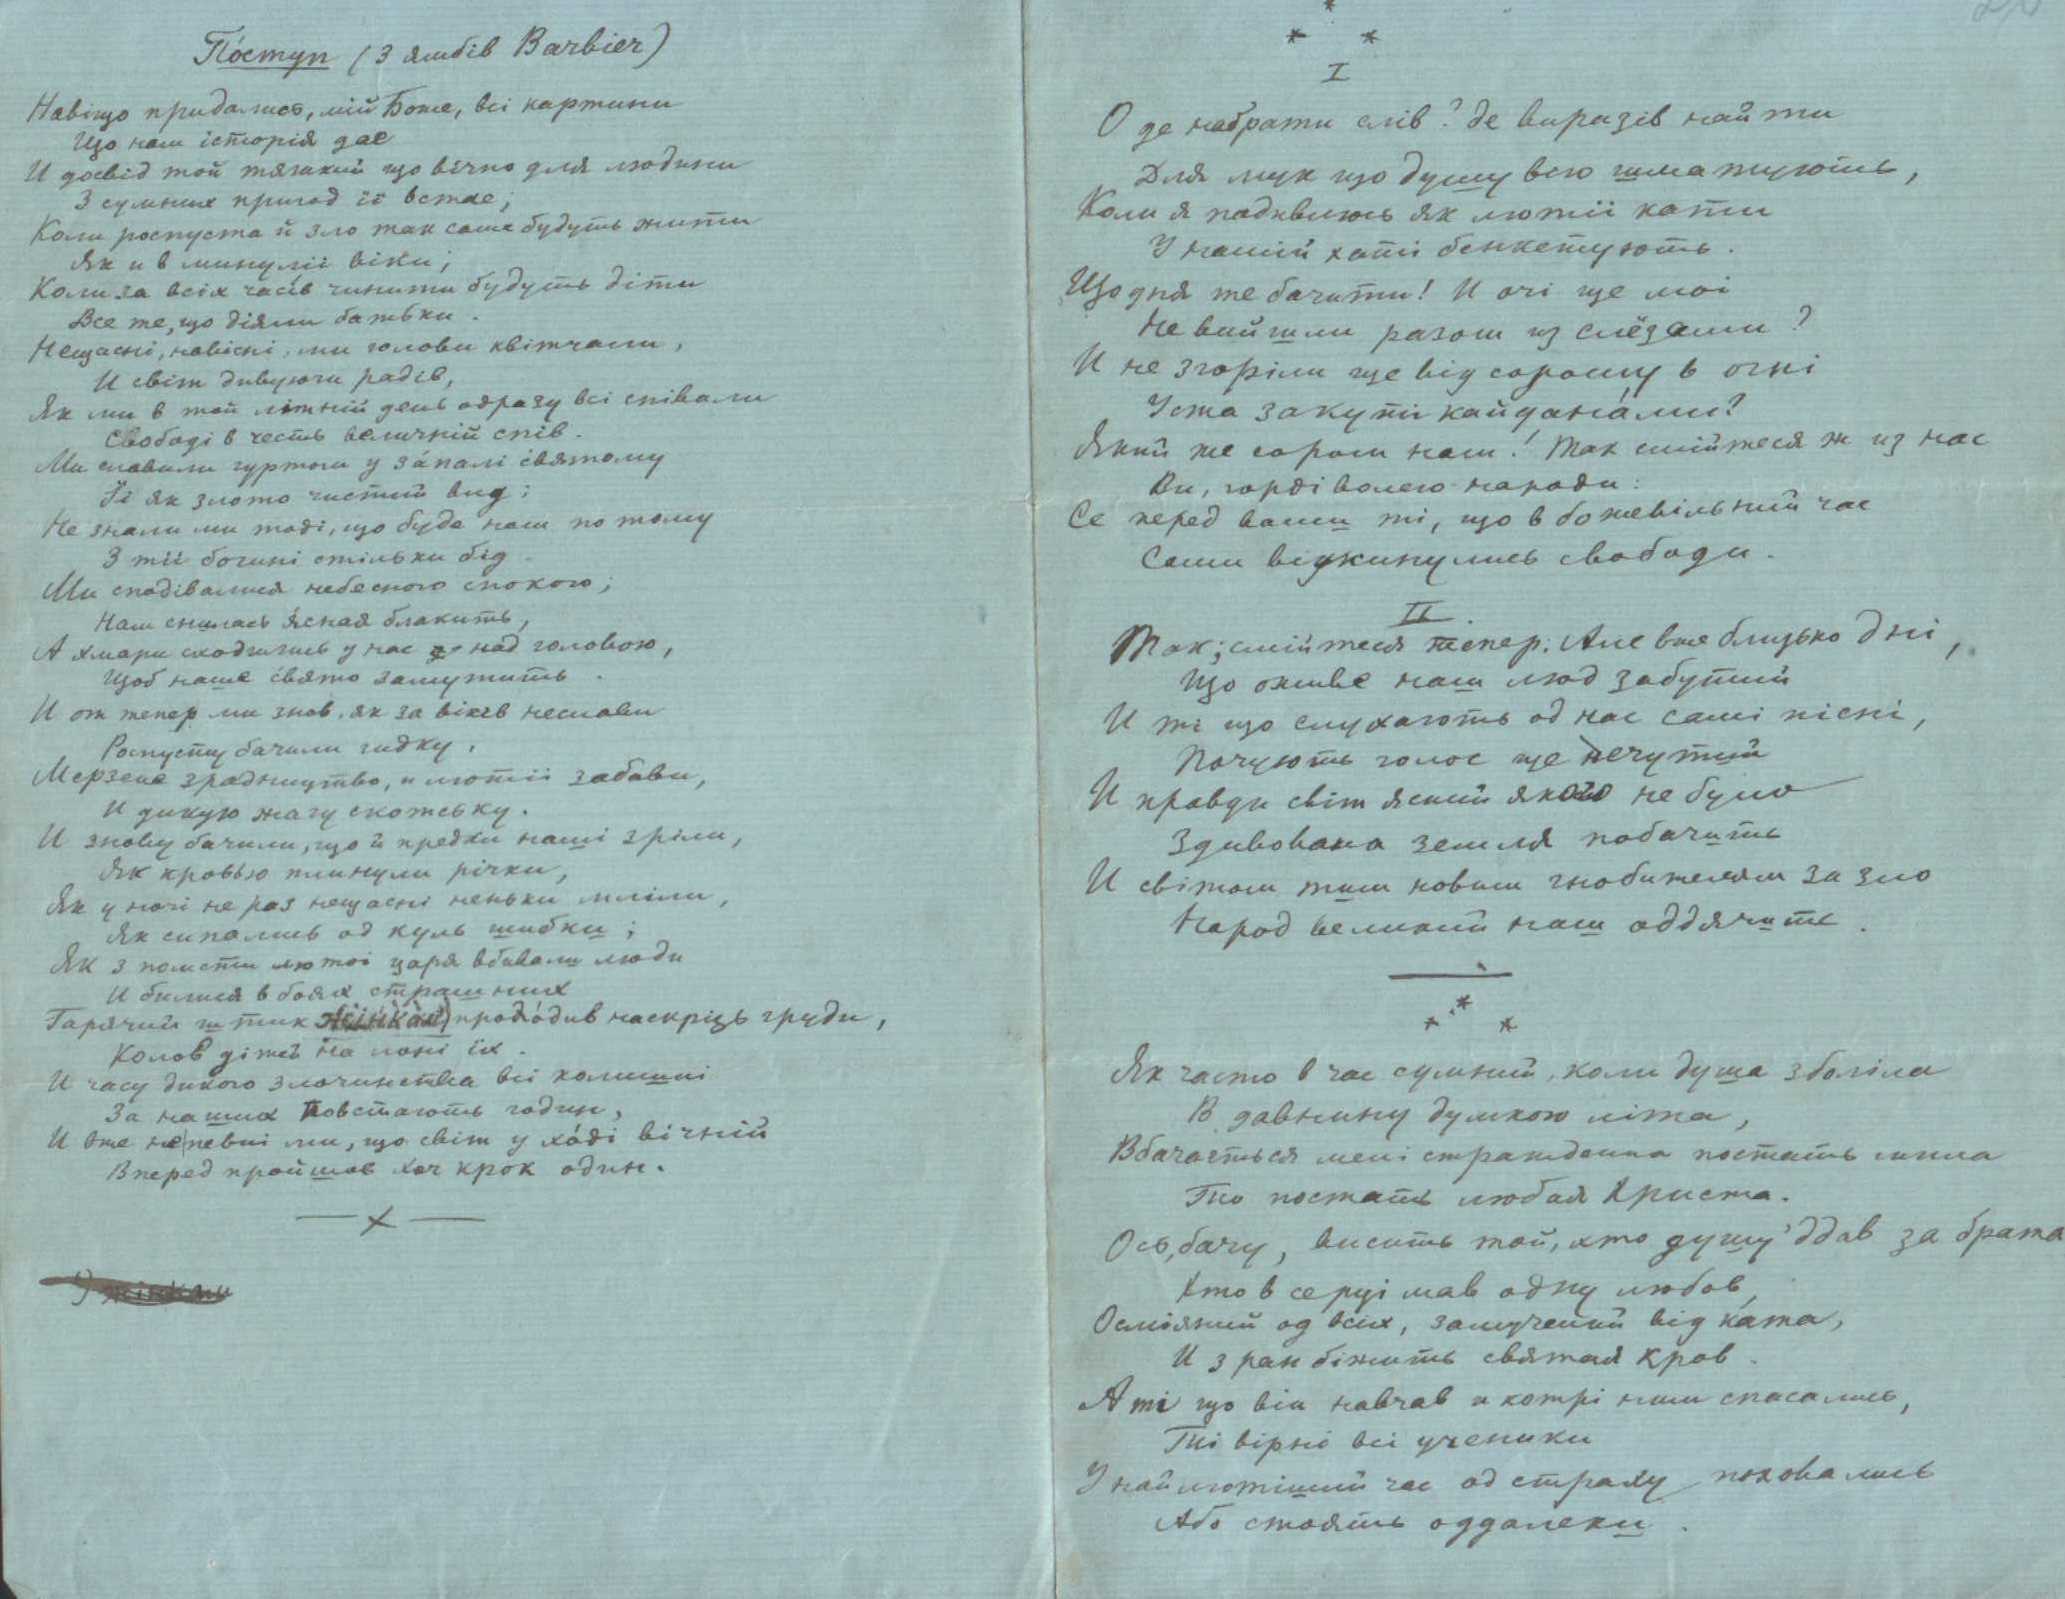 Поступ (З ямбів Barbier)
Навіщо придались, мій Боже, всі картини
Що нам історія дає
И досвід той тяжкий що вічно для людини
З сумних пригод її встає;
Коли роспуста й зло так само будуть жити
Як и в минулії віки;
Коли за всіх часів чинити будуть діти
Все те, що діяли батьки.
Нещасні, навісні, ми голови квітчали,
И світ дивуючи радів,
Як ми в той літній день одразу всі співали
Свободі в честь величній спів.
Ми славили гуртом у запалі святому
Її як злото чистий вид;
Не знали ми тоді, що буде нам по тому
З тії богині стільки бід.
Ми сподівалися небесного спокою;
Нам снилась ясная блакить,
А хмари сходились у нас над головою,
Щоб наше свято замутить.
И от тепер ми знов, як за віків неслави
Роспусту бачили гидку,
Мерзене зрадництво, и лютії забави,
И дикую жагу скотську.
И знову бачили, що й предки наші зріли,
Як кровъю плинули річки,
Як у ночі не раз нещасні неньки мліли,
Як сипались од куль шибки;
Як з помсти лютоі царя вбивали люди
И билися в боях страшних
Гарячий штик жінкам проходив наскрізь груди,
Колов дітей на лоні їх.
И часу дикого злочинства всі колишні
За наших повстають годин,
И вже непевні ми, що світ у ході вічній
Вперед пройшов хоч крок один.
* * *
I
О де набрати слів? де виразів найти
Для мук що душу всю шматують,
Коли я подивлюсь як лютії кати
У нашій хаті бенкетують.
Щодня те бачити! И очі ще мої
Не вийшли разом из слёзами?
И не згоріли ще від сорому в огні
Уста закуті кайданами?
Який же сором нам! Так смійтеся ж из нас
Ви, горді волею народи:
Се перед вами ті, що в божевільний час
Сами відкинулись свободи.
II.
Так; смійтеся тепер: Але вже близько дні,
Що оживе наш люд забутий
И ті що слухають од нас самі пісні,
Почують голос ще нечутий
И правди світ ясний якого не було
Здивована земля побачить
И світом тим новим гнобителям за зло
Народ великий наш оддячить.
* * *
Як часто в час сумний, коли душа зболіла
В давнину думкою літа,
Вбачається мені страждення постать мила
Тио постать любая Христа.
Ось, бачу, висить той, хто душу 'ддав за брата
Хто в серці мав одну любов,
Осміяний од всіх, замучений від ката,
И з ран біжить святая кров.
А ті що він навчав и котрі ним спасались,
Ті вірні всі ученики
У найлютіший час од страху поховались
Або стоять оддалеки.